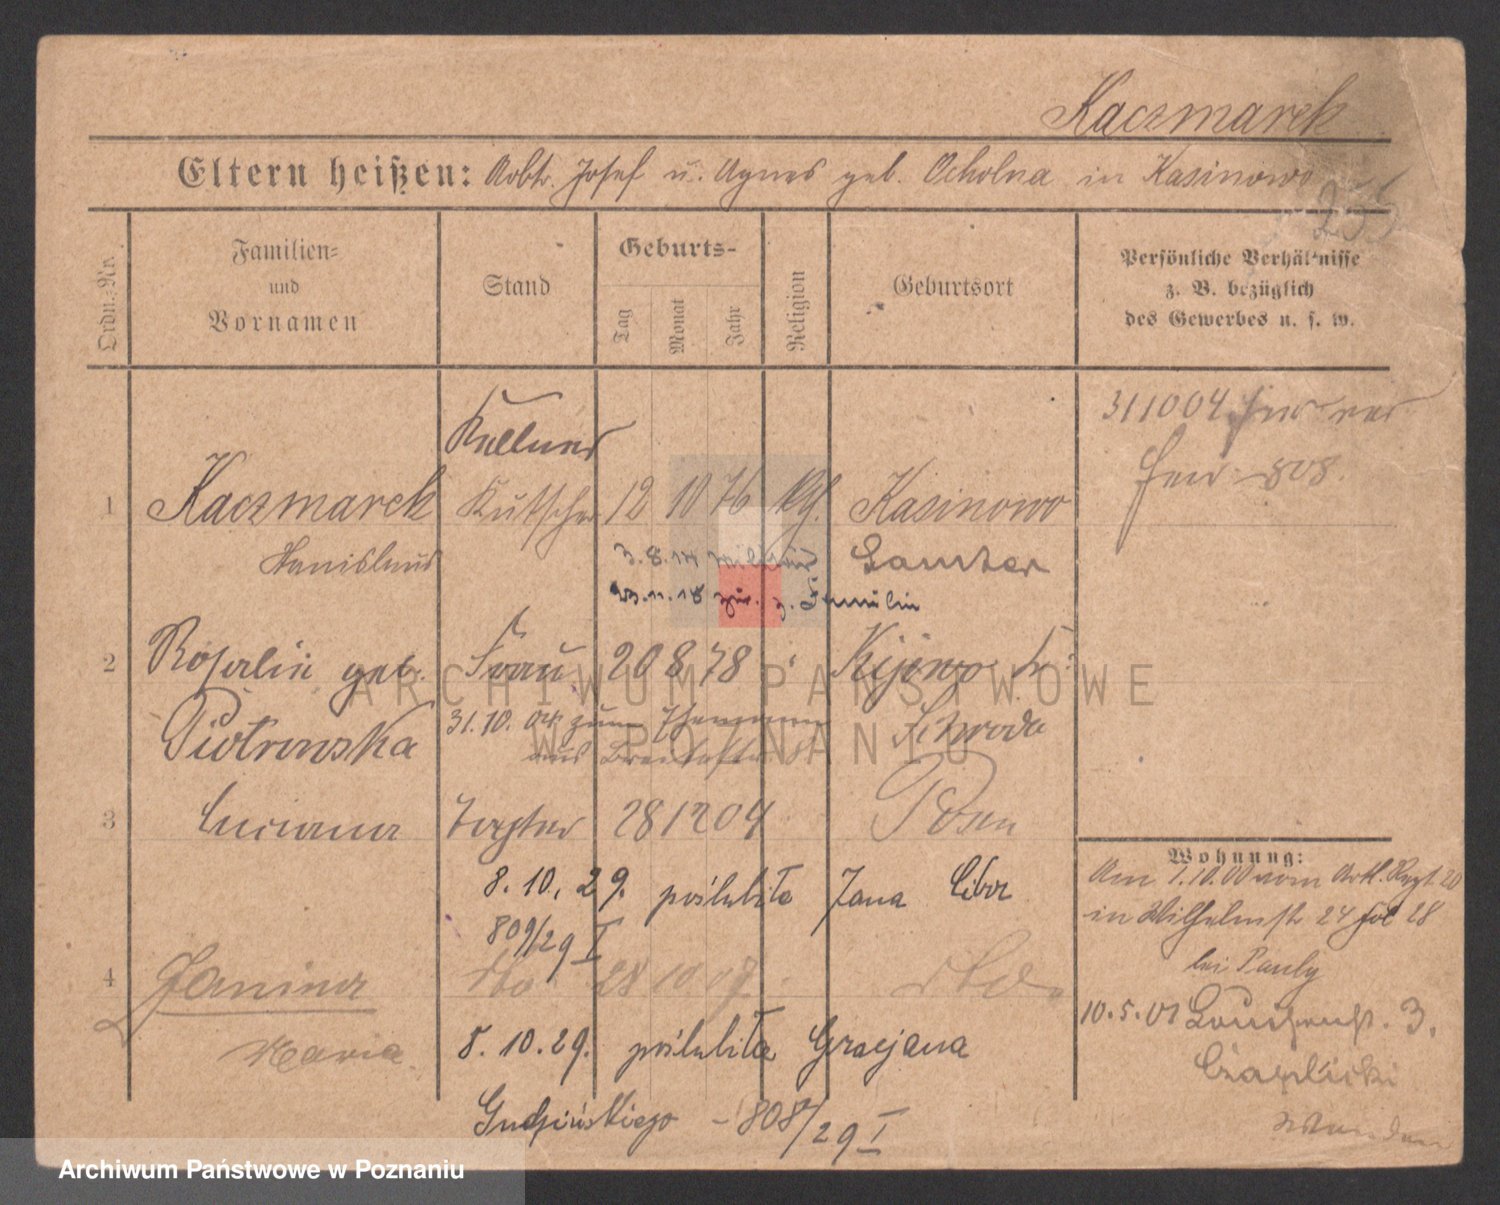 Kaczmarek
Eltern heißen: Arbtr. Josef u. Agnes geb. Ocholna in Kasinowo
255
Ordn.-Nr.
Familien-
und
Vornamen
Stand
Geburts-
Tag
Monat
Jahr
Religion
Geburtsort
Persönliche Verhältnisse
z. B. bezüglich
des Gewerbes u. s. w.
311004
808.
Kellner
1 Kaczmarek Kutscher 12 10 76 kth. Kasinowo
Stanislaus 3.8.14 Militär Samter
23.11.18 zur. z. Familie
2 Rosalie geb. Frau 20 8 78 " Kijewo Kr.
Piotrowska 31.10. zum Ehemann Schroda
aus
3 Luciana Tochter 28 12 04 Posen
8.10.29. poślubiła Jana Cibor
809/29 I
4 Janina dto 28 10 07. dto.
Maria 8.10.29. poślubiła Gracjana
Gudzińskiego - 808/29 I
Wohnung:
Am 1.10.00 vom Artl. Regt 20
in Wilhelmstr 24 fol 28
bei Pauly
10.5.01 Louisenst. 3.
Czaplicki
ARCHIWUM PAŃSTWOWE
W POZNANIU
Archiwum Państwowe w Poznaniu